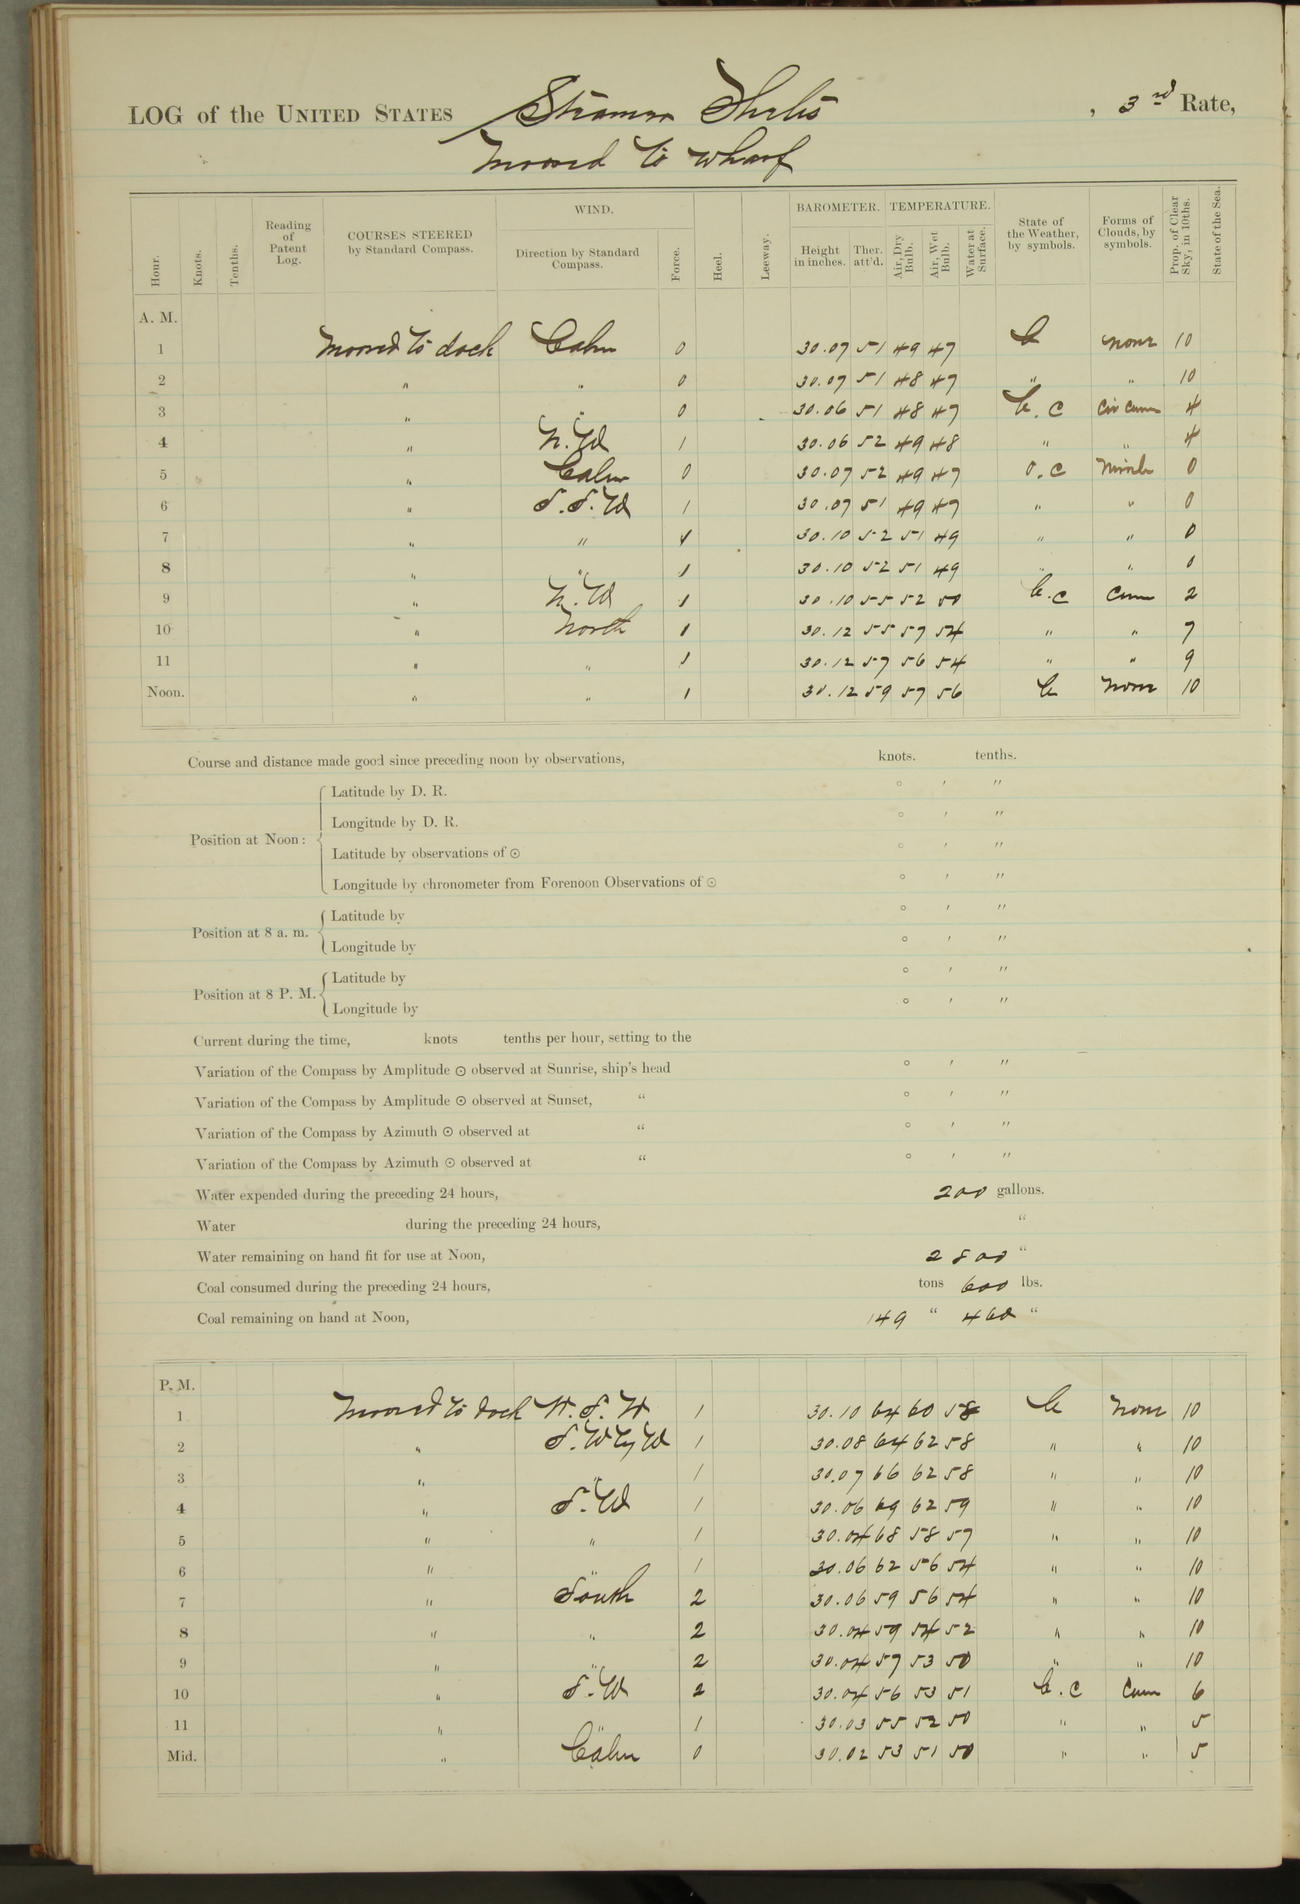 LOG of the UNITED STATES Steamer Thetis , 3rd Rate,
Moored to wharf
WIND. BAROMETER. TEMPERATURE.
Hour. Knots. Tenths. Reading of Patent Log. COURSES STEERED by Standard Compass. Direction by Standard Compass. Force. Heel. Leeway. Height in inches. Ther. att'd. Air, Dry Bulb. Air, Wet Bulb. Water at Surface. State of the Weather, by symbols. Forms of Clouds, by symbols. Prop. of Clear Sky, in 10ths. State of the Sea.
A. M.
1 Moored to dock Calm 0 30.07 51 49 47 b none 10
2 " " 0 30.07 51 48 47 " " 10
3 " " 0 30.06 51 48 47 b.c Cir Cum 4
4 " N.W 1 30.06 52 49 48 " " 4
5 " Calm 0 30.07 52 49 47 o.c Nimb 0
6 " S.S.W 1 30.07 51 49 47 " " 0
7 " " 1 30.10 52 51 49 " " 0
8 " " 1 30.10 52 51 49 " " 0
9 " N.W 1 30.10 55 52 50 b.c Cum 2
10 " North 1 30.12 55 57 54 " " 7
11 " " 1 30.12 57 56 54 " " 9
Noon. " " 1 30.12 59 57 56 b none 10
Course and distance made good since preceding noon by observations, knots. tenths.
Latitude by D. R. ° ′ ″
Longitude by D. R. ° ′ ″
Position at Noon:
Latitude by observations of ⊙ ° ′ ″
Longitude by chronometer from Forenoon Observations of ⊙ ° ′ ″
Latitude by ° ′ ″
Position at 8 a. m.
Longitude by ° ′ ″
Latitude by ° ′ ″
Position at 8 P. M.
Longitude by ° ′ ″
Current during the time, knots tenths per hour, setting to the
Variation of the Compass by Amplitude ⊙ observed at Sunrise, ship's head ° ′ ″
Variation of the Compass by Amplitude ⊙ observed at Sunset, " ° ′ ″
Variation of the Compass by Azimuth ⊙ observed at " ° ′ ″
Variation of the Compass by Azimuth ⊙ observed at " ° ′ ″
Water expended during the preceding 24 hours, 200 gallons.
Water during the preceding 24 hours, "
Water remaining on hand fit for use at Noon, 2800 "
Coal consumed during the preceding 24 hours, tons 600 lbs.
Coal remaining on hand at Noon, 149 " 460 "
P. M.
1 Moored to dock W.S.W 1 30.10 64 60 58 b none 10
2 " S.W by W 1 30.08 64 62 58 " " 10
3 " " 1 30.07 66 62 58 " " 10
4 " S.W 1 30.06 69 62 59 " " 10
5 " " 1 30.04 68 58 57 " " 10
6 " " 1 30.06 62 56 54 " " 10
7 " South 2 30.06 59 56 54 " " 10
8 " " 2 30.04 59 54 52 " " 10
9 " " 2 30.04 57 53 50 " " 10
10 " S.W 2 30.04 56 53 51 b.c Cum 6
11 " " 1 30.03 55 52 50 " " 5
Mid. " Calm 0 30.02 53 51 50 " " 5